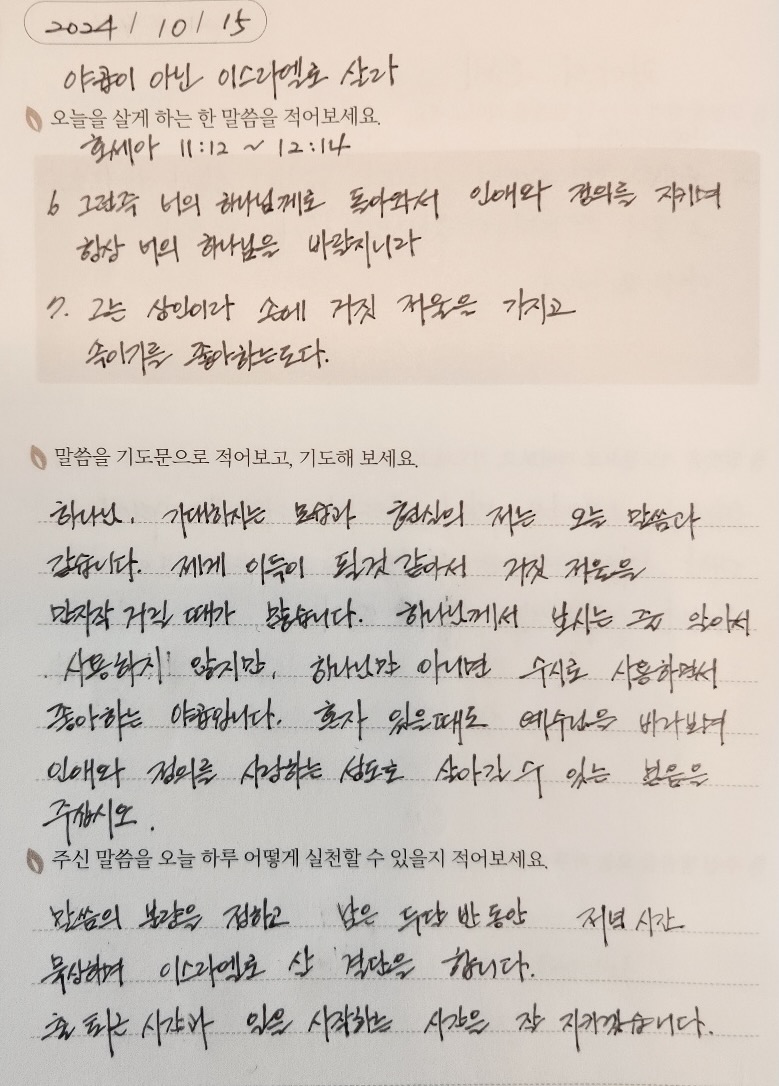 2024 / 10 / 15
야곱이 아닌 이스라엘로 살라
오늘을 살게 하는 한 말씀을 적어보세요.
호세아 11:12 ~ 12:14
6 그런즉 너의 하나님께로 돌아와서 인애와 정의를 지키며
항상 너의 하나님을 바랄지니라
7. 그는 상인이라 손에 거짓 저울을 가지고
속이기를 좋아하는도다.
말씀을 기도문으로 적어보고, 기도해 보세요.
하나님. 기대하시는 모습과 현실의 저는 오늘 말씀과
같습니다. 제게 이득이 될것 같아서 거짓 저울을
만지작 거릴 때가 많습니다. 하나님께서 보시는 줄 알아서
사용하지 않지만, 하나님만 아니면 수시로 사용하면서
좋아하는 야곱입니다. 혼자 있을때도 예수님을 바라보며
인애와 정의를 사랑하는 성도로 살아갈 수 있는 믿음을
주십시오.
주신 말씀을 오늘 하루 어떻게 실천할 수 있을지 적어보세요.
말씀의 분량을 정하고 남은 두달 반 동안 저녁 시간
묵상하며 이스라엘로 살 결단을 합니다.
출 퇴근 시간과 일을 시작하는 시간을 잘 지키겠습니다.